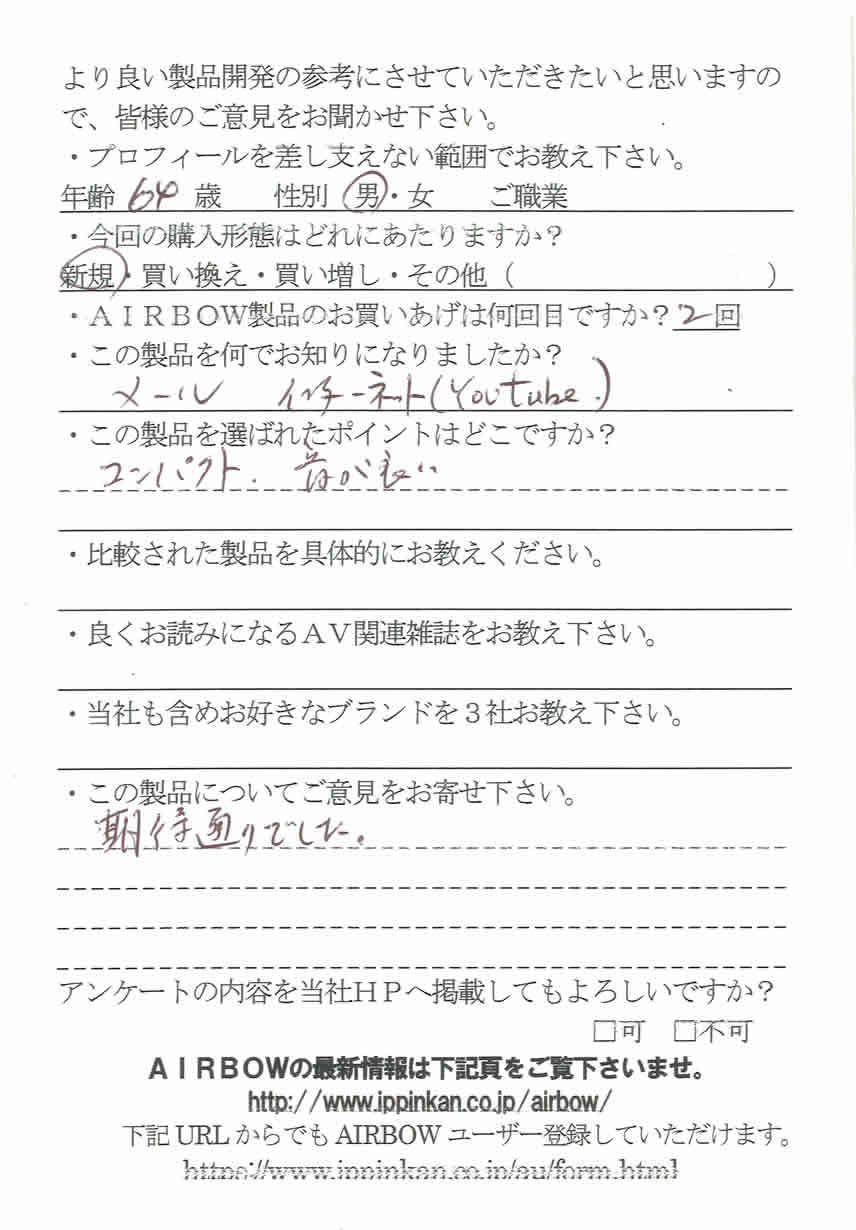 より良い製品開発の参考にさせていただきたいと思いますの
で、皆様のご意見をお聞かせ下さい。
・プロフィールを差し支えない範囲でお教え下さい。
年齢 64 歳　性別　男・女　ご職業
・今回の購入形態はどれにあたりますか？
新規・買い換え・買い増し・その他（　　　）
・ＡＩＲＢＯＷ製品のお買いあげは何回目ですか？2回
・この製品を何でお知りになりましたか？
メール　インターネット(Youtube)
・この製品を選ばれたポイントはどこですか？
コンパクト. 音が良い
・比較された製品を具体的にお教えください。
・良くお読みになるＡＶ関連雑誌をお教え下さい。
・当社も含めお好きなブランドを３社お教え下さい。
・この製品についてご意見をお寄せ下さい。
期待通りでした。
アンケートの内容を当社ＨＰへ掲載してもよろしいですか？
□可　□不可
ＡＩＲＢＯＷの最新情報は下記頁をご覧下さいませ。
http://www.ippinkan.co.jp/airbow/
下記 URL からでも AIRBOW ユーザー登録していただけます。
https://www.ippinkan.co.jp/au/form.html